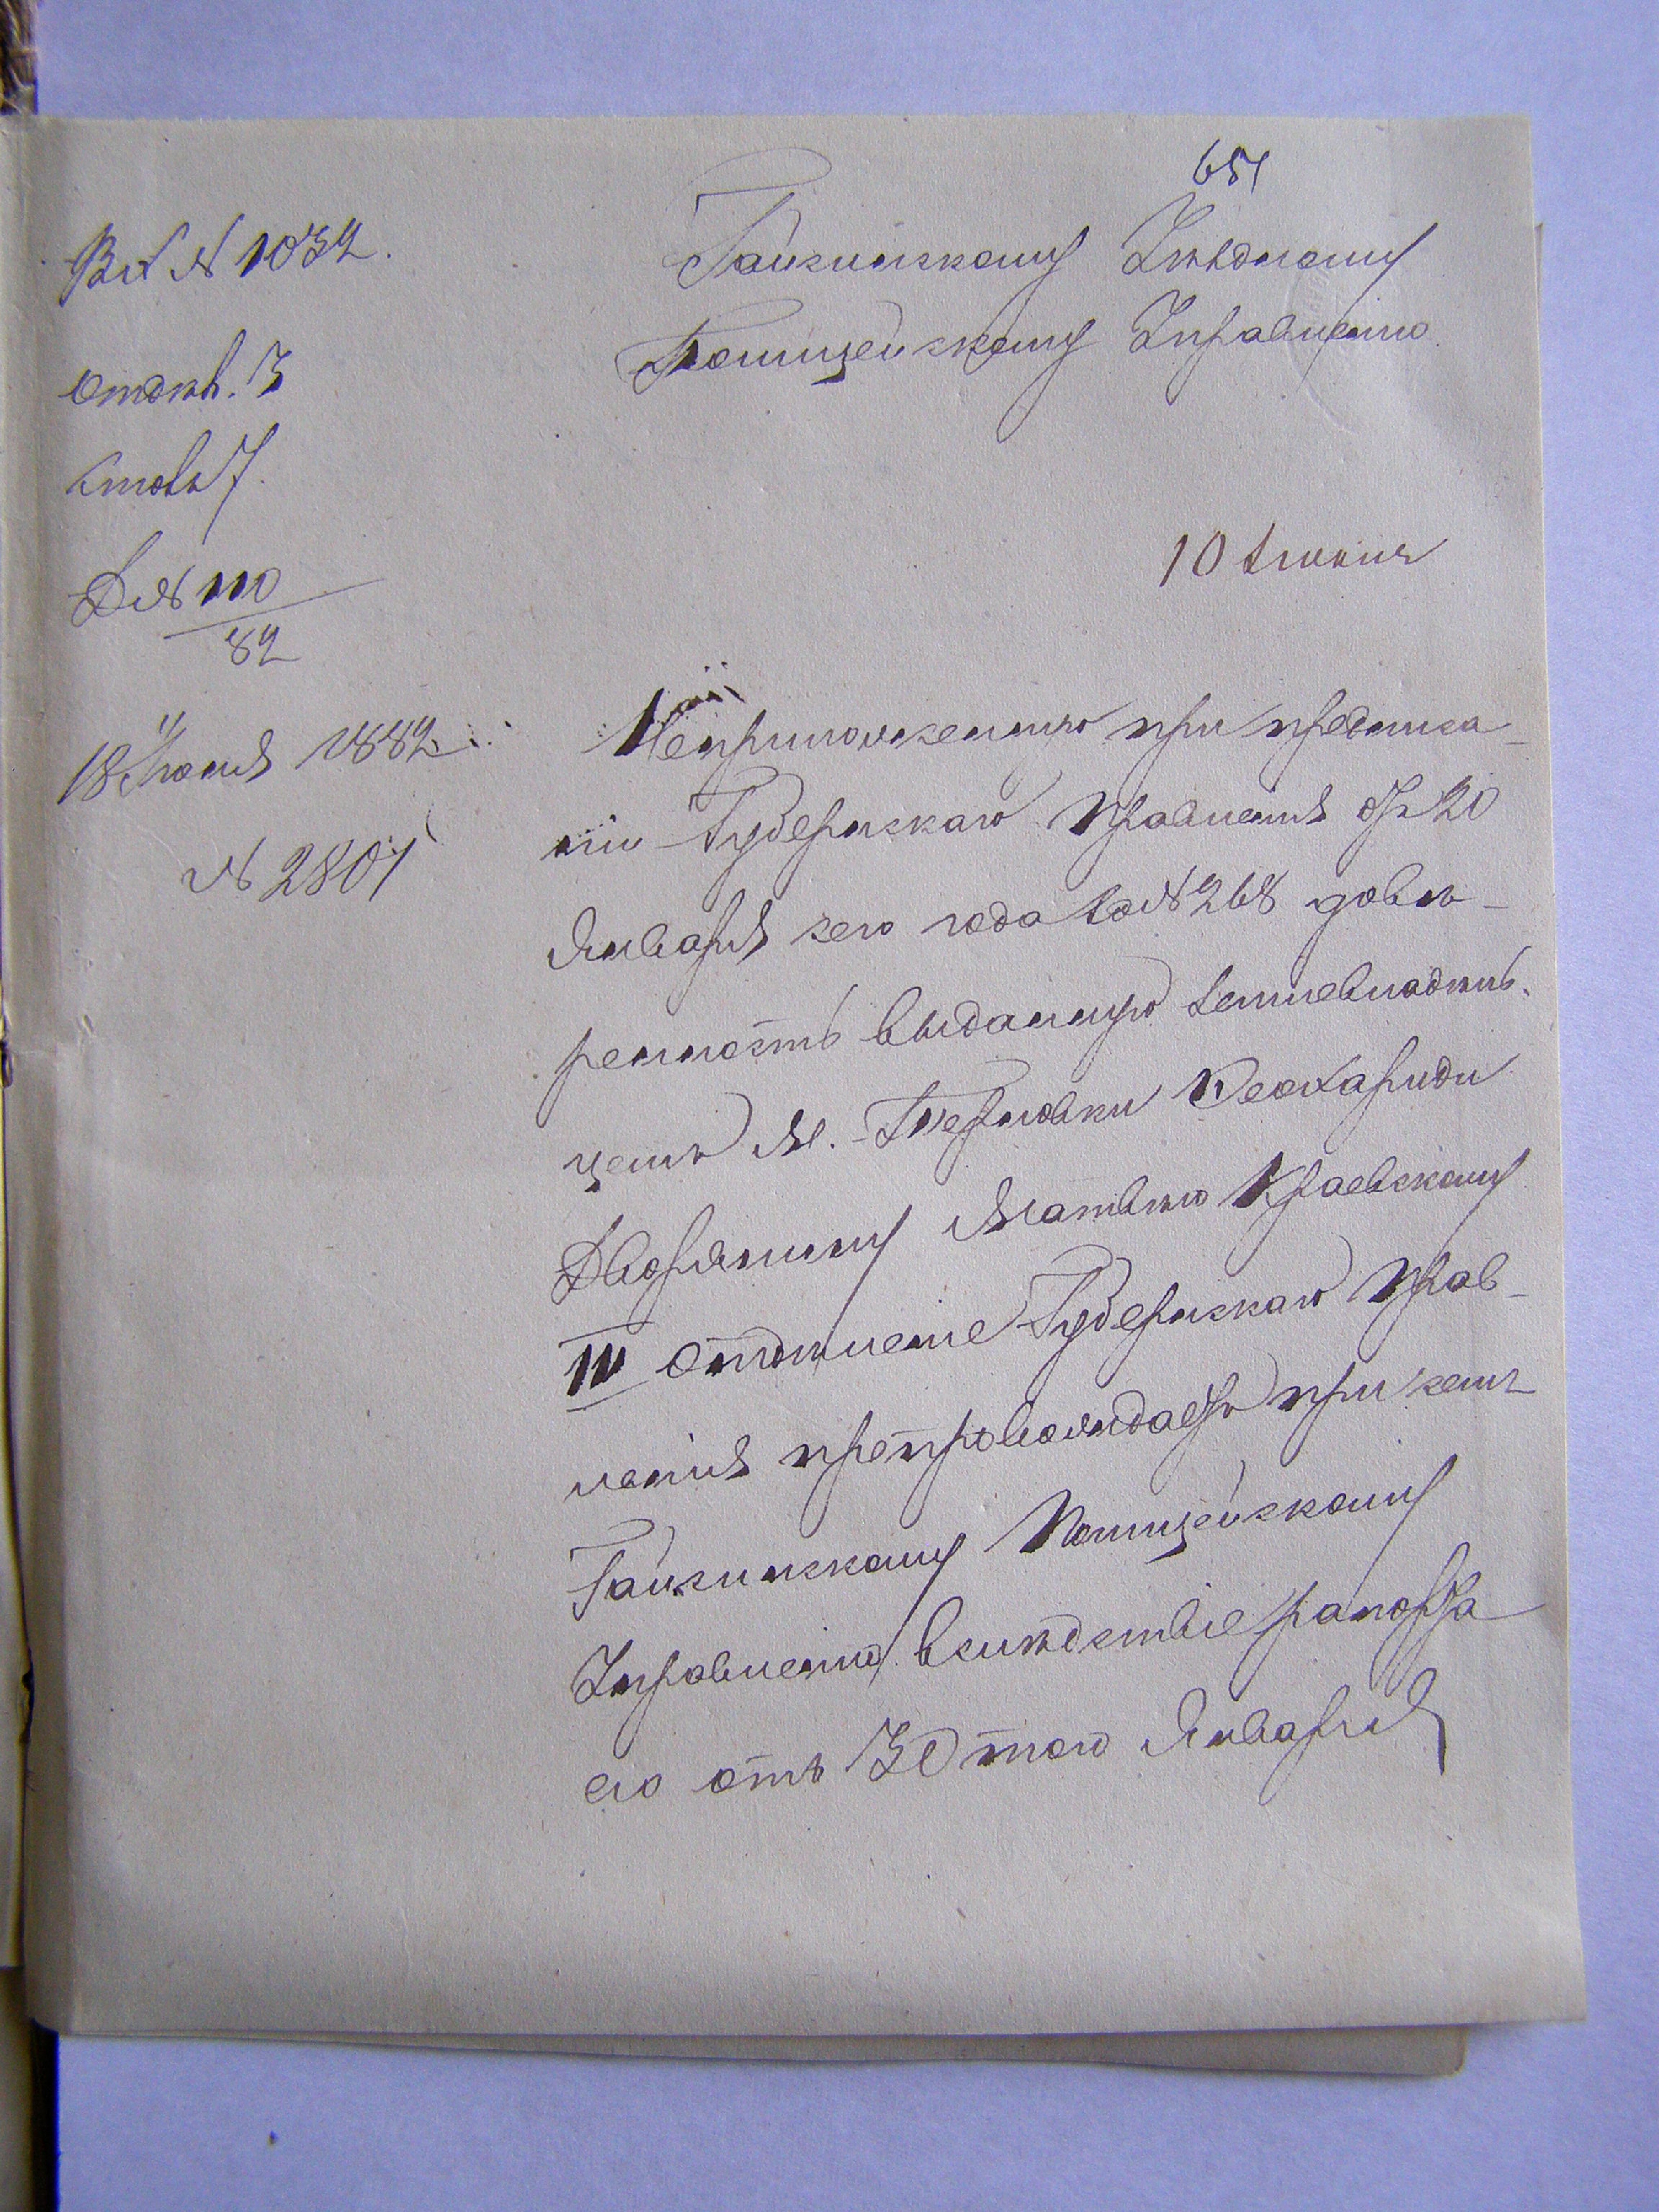 651
Вх № 1032.
Отдѣл. 3
Столъ 7.
Д № 110
82
18 Іюня 1882
№ 2801
Гайсинскому Уѣздному
Полицейскому Управленію
10 Іюня
Неприложенную при предписа-
ніи Губернскаго Правленія отъ 20
Января сего года за № 268 довѣ-
ренность выданную землевладѣль-
цемъ М. Терновки
Дворянину Матвѣю Краевскому
III Отдѣленіе Губернскаго Прав-
ленія препровождаетъ при семъ
Гайсинскому Полицейскому
Управленію вслѣдствіе рапорта
его отъ 30 того Января